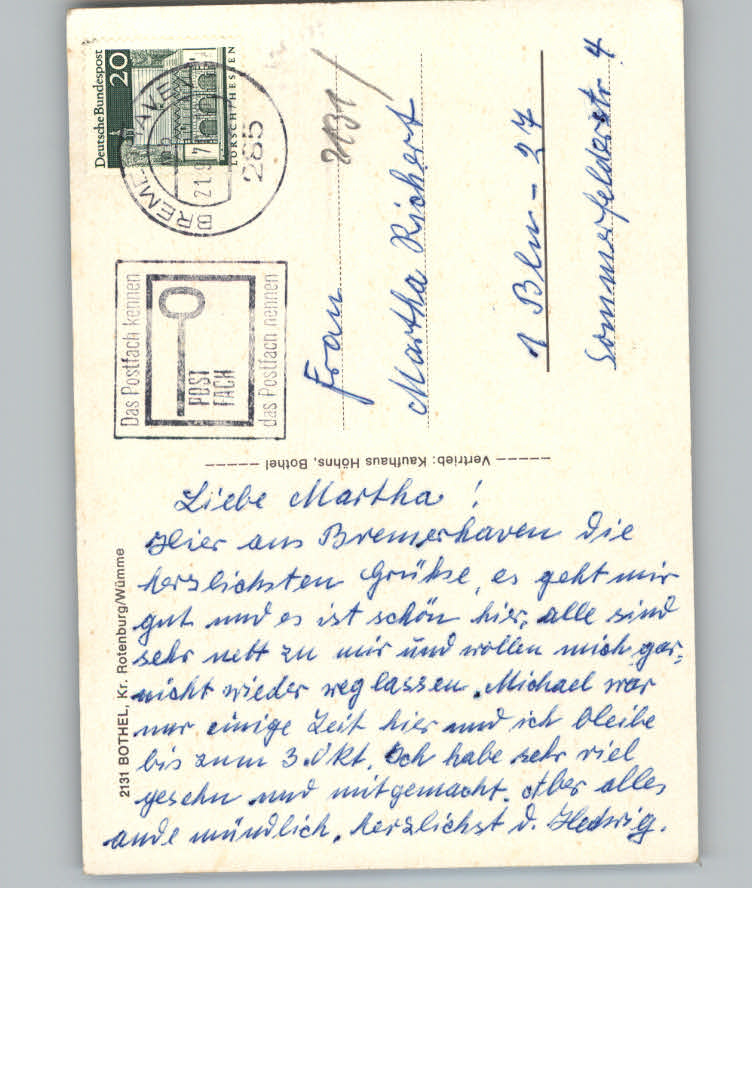 Deutsche Bundespost
20
LORSCH/HESSEN
21.9.7
285
Das Postfach kennen
POST
FACH
das Postfach nennen
2131
Frau
Martha Richert
1 Bln-27
Sommerfelderstr 4
Vertrieb: Kaufhaus Höhns, Bothel
2131 BOTHEL, Kr. Rotenburg/Wümme
Liebe Martha!
Hier aus Bremerhaven die
herzlichsten Grühse, es geht mir
gut und es ist schön hier, alle sind
sehr nett zu mir und wollen mich gar-
nicht wieder weglassen. Michael war
nur einige Zeit hier und ich bleibe
bis zum 3. Okt. Ich habe sehr viel
gesehn und mitgemacht. Aber alles
ande mündlich, herzlichst d. Hedwig.